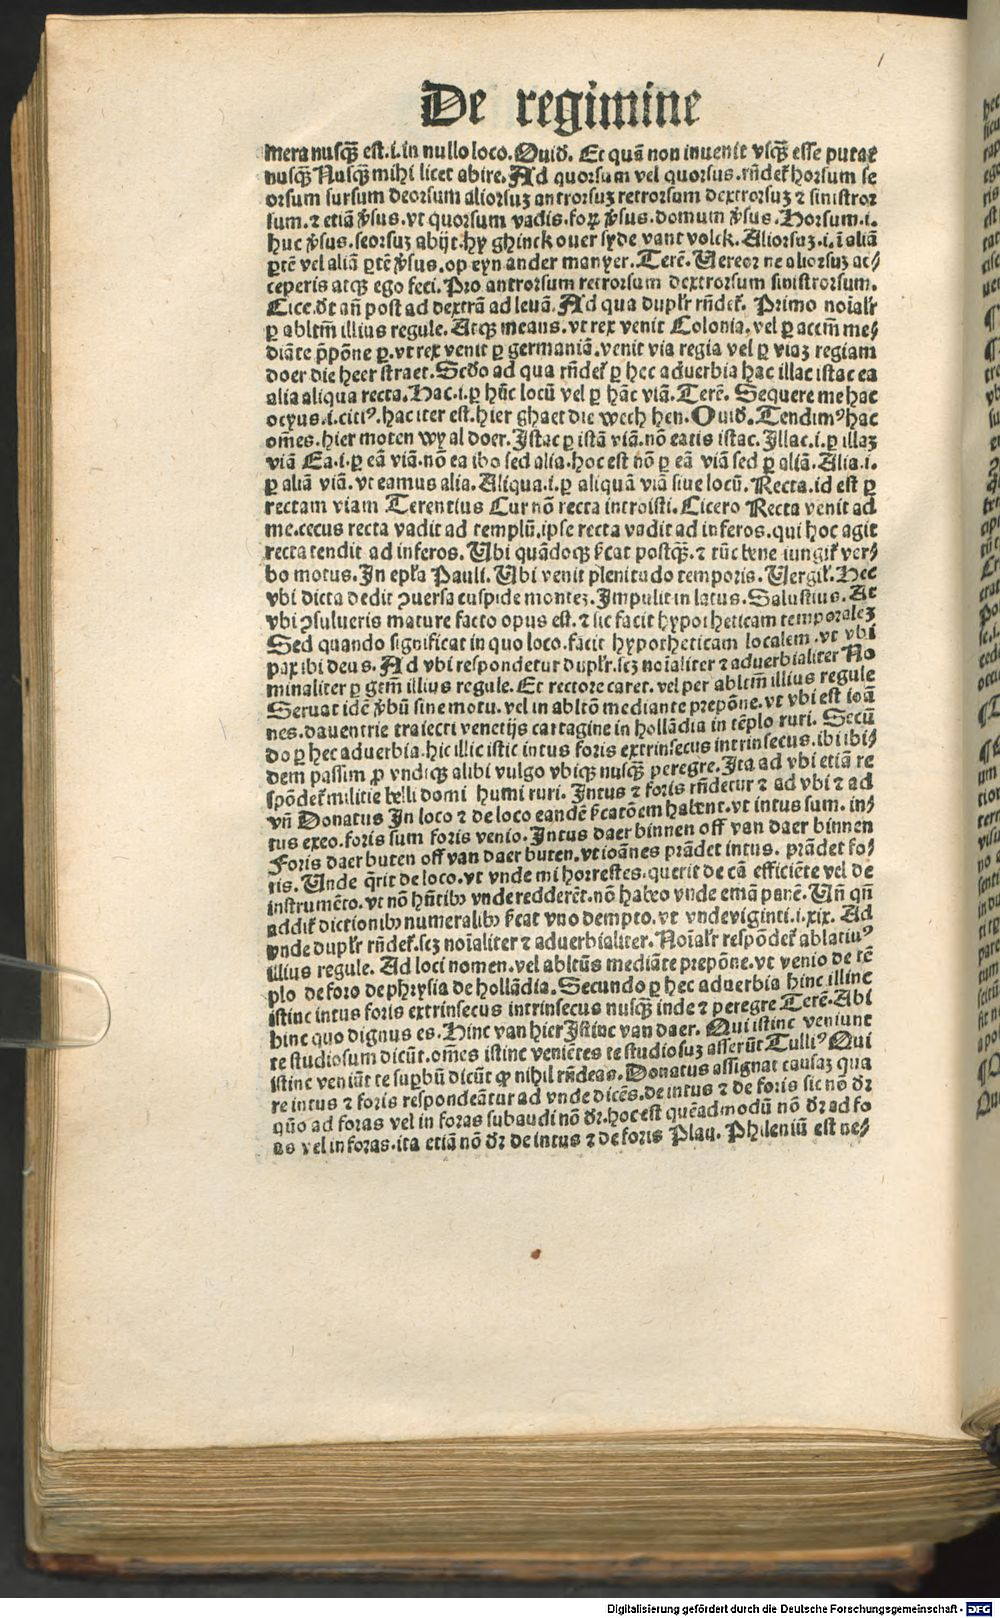 De regimine
mera nusqȝ est.i.in nullo loco.Ouid. Et quā non inuenit vsqȝ esse putat
nusqȝ Nusqȝ mihi licet abire. Ad quorsum vel quorsus.rñdet̄ horsum se
orsum sursum deorsum aliorsuȝ antrorsuȝ retrorsum dextrorsuȝ ⁊ sinistror
sum.⁊ etiā v̄sus.vt quorsum vadis.foꝝ v̄sus.domum v̄sus.Horsum.i.
huc v̄sus.seorsuȝ abijt.hy ghinck ouer syde vant volck.Aliorsuȝ.i.ī aliā
ꝑtē vel aliā ꝑtē v̄sus.op eyn ander manyer.Terē.Uereor ne aliorsuȝ ac⸗
ceperis atqȝ ego feci.Pro antrorsum retrorsum dextrorsum sinistrorsum.
Cice.dt̄ añ post ad dextrā ad leuā.Ad qua duplr̄ rñdet̄. Primo noīalr̄
ꝑ abltm̄ illius regule.Atqȝ means.vt rex venit Colonia.vel ꝑ acctm̄ me⸗
diāte p̄pōne ꝑ.vt rex venit ꝑ germaniā.venit via regia vel ꝑ viaȝ regiam
doer die heer straet.Scd̄o ad qua rñdet̄ ꝑ hec aduerbia hac illac istac ea
alia aliqua recta.Hac.i.ꝑ hūc locū vel ꝑ hāc viā.Terē. Sequere me hac
ocyus.i.citiꝰ.hac iter est.hier ghaet die wech hen.Ouid.Tendimꝰ hac
om̄es.hier moten wy al doer.Istac ꝑ istā viā.nō eatis istac.Illac.i.ꝑ illaȝ
viā Ea.i.ꝑ eā viā.nō ea ibo sed alia.hoc est nō ꝑ eā viā sed ꝑ aliā.Alia.i.
ꝑ aliā viā.vt eamus alia.Aliqua.i.ꝑ aliquā viā siue locū.Recta.id est ꝑ
rectam viam Terentius Cur nō recta introisti.Cicero Recta venit ad
me.cecus recta vadit ad templū.ipse recta vadit ad inferos.qui hoc agit
recta tendit ad inferos.Ubi quādoqȝ s̄cat postqȝ.⁊ tūc bene iungit̄ ver⸗
bo motus.In epl̄a Pauli.Ubi venit plenitudo temporis.Uergil̄.Hec
vbi dicta dedit ꝯuersa cuspide monteȝ.Impulit in latus.Salustius.At
vbi ꝯsulueris mature facto opus est.⁊ sic facit hypotheticam temporaleȝ
Sed quando significat in quo loco.facit hypotheticam localem.vt vbi
pax ibi deus.Ad vbi respondetur duplr̄.scȝ noīaliter ⁊ aduerbialiter No
minaliter ꝑ gtm̄ illius regule.Et rectore caret.vel per abltm̄ illius regule
Seruat idē v̄bū sine motu.vel in abltō mediante prepōne.vt vbi est ioā
nes.dauentrie traiecti venetijs cartagine in hollādia in tēplo ruri. Secū
do ꝑ hec aduerbia.hic illic istic intus foris extrinsecus intrinsecus.ibi ibi⸗
dem passim ꝓ vndiqȝ alibi vulgo vbiqȝ nusqȝ peregre.Ita ad vbi etiā re
spōdet̄ militie belli domi humi ruri.Intus ⁊ foris rñdetur ⁊ ad vbi ⁊ ad
vñ Donatus In loco ⁊ de loco eandē s̄catōem habent.vt intus sum.in⸗
tus exeo.foris sum foris venio.Intus daer binnen off van daer binnen
Foris daer buten off van daer buten.vt ioānes prādet intus. prādet fo⸗
ris.Unde q̄rit de loco.vt vnde mi horrestes.querit de cā efficiēte vel de
instrumēto.vt nō hn̄tibꝫ vnde redderēt.nō habeo vnde emā panē.Uñ qñ
addit̄ dictionibꝫ numeralibꝫ s̄cat vno dempto.vt vndeviginti.i.xix. Ad
vnde duplr̄ rñdet̄.scȝ noīaliter ⁊ aduerbialiter.Noīalr̄ respōdet̄ ablatiuꝰ
illius regule. Ad loci nomen.vel abltūs mediāte prepōne.vt venio de tē
plo de foro de phrysia de hollādia.Secundo ꝑ hec aduerbia hinc illinc
istinc intus foris extrinsecus intrinsecus nusqȝ inde ⁊ peregre Terē.Abi
hinc quo dignus es.Hinc van hier Istinc van daer. Qui istinc veniunt
te studiosum dicūt.om̄es istinc veniētes te studiosuȝ asserūt Tulliꝰ Qui
istinc veniūt te suꝑbū dicūt ꝙ nihil rñdeas.Donatus assignat causaȝ qua
re intus ⁊ foris respondeātur ad vnde dicēs.de intus ⁊ de foris sic nō dr̄
quō ad foras vel in foras subaudi nō dr̄.hoc est quēadmodū nō dr̄ ad fo
as vel in foras.ita etiā nō dr̄ de intus ⁊ de foris Plau. Phileniū est ne⸗
Digitalisierung gefördert durch die Deutsche Forschungsgemeinschaft - DFG